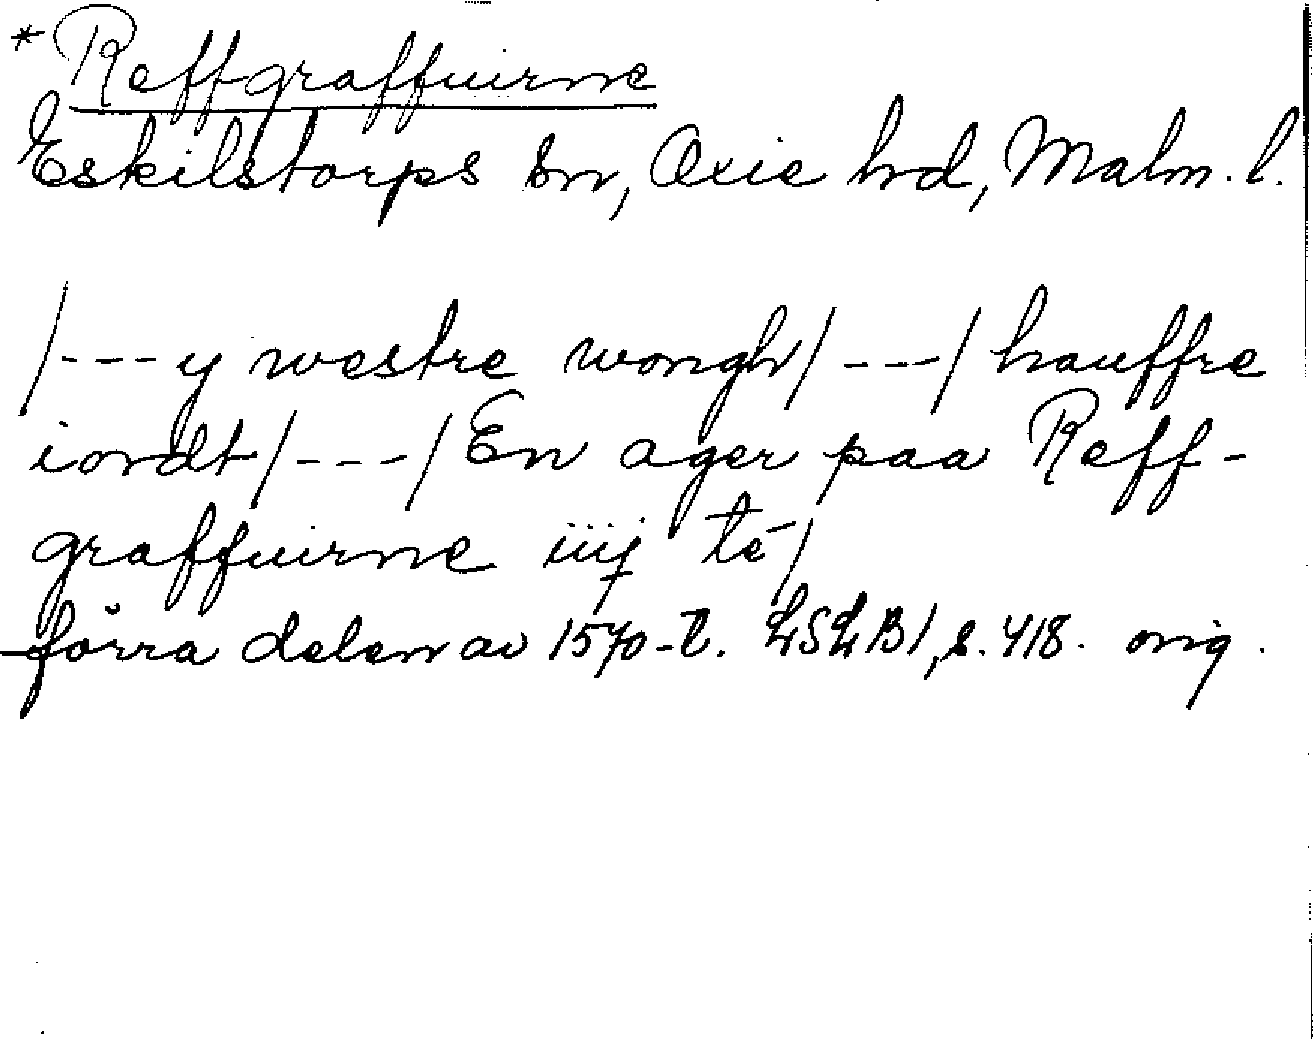 *Reffgraffuirne
Eskilstorps sn, Oxie hd, Malm. l.
/---y westre wongh/---/hauffre
iordt/---/En ager paa Reff-
graffuirne iiij té/
förra delen av 1570-t. LSLB1, s. 418. orig.